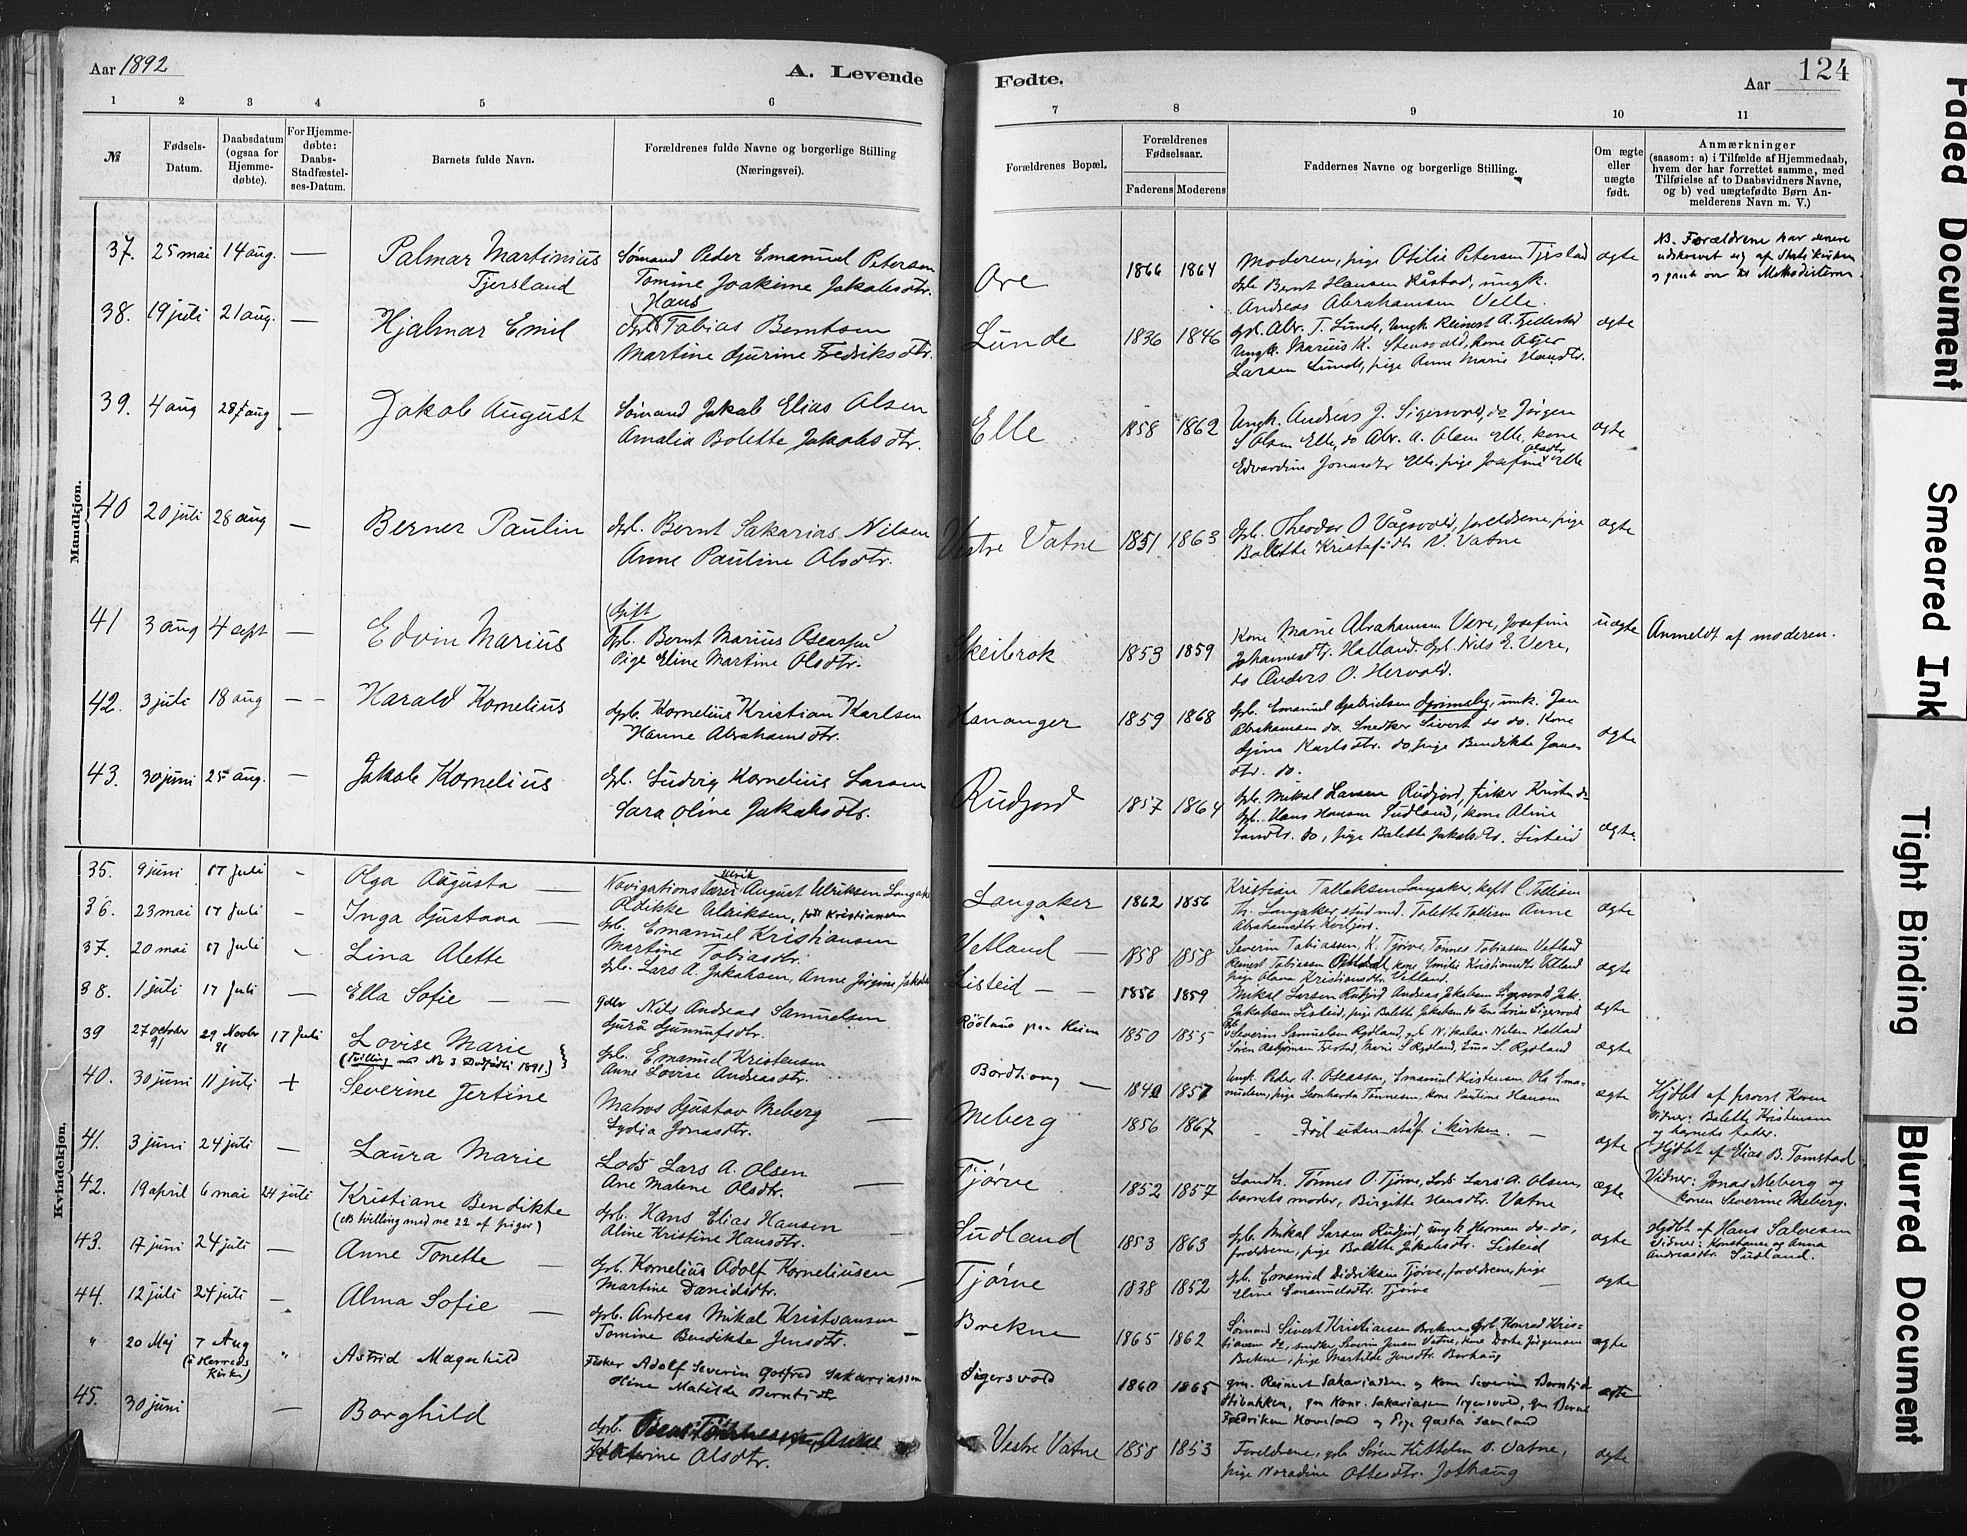 Aar 1892
A. Levende
Fødte.
Aar
124
1 2 3 4 5 6 7 8 9 10 11
№
Fødsels-
Datum.
Daabsdatum
(ogsaa for
Hjemme-
døbte).
For Hjemme-
døbte:
Daabs-
Stadfæstel-
ses-Datum.
Barnets fulde Navn.
Forældrenes fulde Navne og borgerlige Stilling
(Næringsvei).
Forældrenes Bopæl.
Forældrenes
Fødselsaar.
Faderens Moderens
Faddernes Navne og borgerlige Stilling.
Om ægte
eller
uægte
født.
Anmærkninger
(saasom: a) i Tilfælde af Hjemmedaab,
hvem der har forrettet samme, med
Tilføielse af to Daabsvidners Navne,
og b) ved uægtefødte Børn An-
melderens Navn m. V.)
Mandkjøn.
37. 25 mai 14 aug. — Palmar Martinius
Tjersland
Sømand Peder Emanuel Petersen
Tomine Joakime Jakobsdtr.
Ore 1866 1864
Moderen, pige Otilie Petersen Tjersland
Gbr. Bernt Hansen Råstad, ungk.
Andreas Abrahamsen Velle.
ægte
NB. Forældrene har senere
udskrevet sig af Statskirken
og gaaet over til Metodisterne
38. 19 juli 21 aug. — Hjalmar Emil
Hans
Gbr. Tobias Berntsen
Martine Gurine Fredriksdtr.
Lunde 1836 1846
Gbr. Abr. T. Lunde, Ungk. Reinert A. Fjellestad
Ungk. Marius K. Stensvold, kone
Larsen Lunde, pige Anne Marie
ægte
39. 4 aug 28 aug — Jakob August
Sømand Jakob Elias Olsen
Amalia Bolette Jakobsdtr.
Elle 1858 1862
Ungk. Andreas J. Sigersvold, do Jørgen
S Olsen Elle, do Abr. A. Olsen Elle, kone
Edvardine Jonasdtr Elle, pige Josefine Olsdtr Elle
ægte
40 20 juli 28 aug — Berner Paulin
Gbr. Bernt Sakarias Nilsen
Anne Pauline Olsdtr.
Vestre Vatne 1851 1863
Gbr. Theodor O Vågsvold, foreldrene, pige
Bolette Kristofsdtr V. Vatne
ægte
41 3 aug 4 sept — Edvin Marius
Gift
Gbr. Bernt Marius
Pige Eline Martine Olsdtr.
Skeibrok 1853 1859
Kone Marie Abrahamsen Vere, Josefine
Johannesdtr. Hatland. Gbr. Nils E. Vere,
do Anders O. Hervold.
uægte
Anmeldt af moderen.
42. 3 juli 18 aug — - Harald Kornelius
Gbr. Kornelius Kristian Karlsen
Hanne Abrahamsdtr.
Hananger 1859 1868
Gbr. Emanuel Gabrielsen, unk. Jan
Abrahamsen do. Snedker Sivert do do. Kone
Gina Karlsdtr. do, pige Bendikte Janas
dtr. do.
ægte
43. 30 juni 25 aug. — Jakob Kornelius
Gbr. Ludvig Kornelius Larsen
Sara Oline Jakobsdtr.
Rudjord 1857 1864
Gbr. Mikal Larsen Rudjord, fisker Kristen do
Gbr. Hans Hansen Sudland, kone Aline
do, pige Balette Jakobsdtr. Listeid
ægte
Kvindekjøn.
35. 9 juni 17 juli - Olga Augusta —
Navigationslærer Ulrik August Ulriksen Langaker
Ulriksen, født Kristiansen
Langaker 1862 1856
Kristian Tallaksen Langaker, kapt C. Tollisen
Th. Langaker, stud. med. Talette Tollisen Anne
Abrahamsdtr
ægte
36. 23 mai 17 juli - Inga Gustava —
Gbr. Emanuel Kristiansen
Martine Tobiasdtr.
Vetland — 1858 1858
Severin Tobiassen, K. Tjørve, Tønnes Tobiassen Vetland
Reinert Tobiassen, kone Emilie Kristiansdtr Vetland
pige Olava Kristiansdtr. Vetland.
ægte
37. 20 mai 17 juli - Lina Alette
Gbr. Lars A. Jakobsen, Anne Jørgine
Listeid — - 1856 1859
Mikal Larsen Rudjord Andreas Jakobsen Sigersvold, Jak.
Jakobsen Listeid, pige Balette Jakobsen do
ægte
38. 1 juli 17 juli — Ella Sofie — -
Gbr Nils Andreas Samuelsen
Guro Gunnufsdtr.
Rødland 1850 1855
Severin Samuelsen Rødland, gbr Nikolai Nilsen Hatland
Søren Asbjørnsen, Marie S Rydland, Emma S. Rydland
ægte
39 27 october 91 29 Novbr 91 17 Juli Lovise Marie
(Tvilling med No 3 Dødfødte 1891.)
Gbr. Emanuel Kristensen
Anne Lovise Andreasdtr.
1857
Ungk. Peder A. Oseassen, Emanuel Kristensen, Ole Ema-
nuelsen, pige Leonharda Tønnesen, kone Pauline Hansen
ægte
Hjdbt af provst Koren
Vidner: Balette Kristensen
og barnets fader.
40. 30 juni 11 juli + Severine Jertine
Matros Gustav Meberg
Lydia Jonasdtr.
Meberg 1856 1867
- Død uden stadf. i kirken. -
ægte
Hjdbt af Elias B. Tomstad
Vidner: Jonas Meberg og
konen Severine Meberg.
41. 3 juni 24 juli — Laura Marie
Lods Lars A. Olsen
Ane Malene Olsdtr.
Tjørve 1852 1857
Landh. Tønnes O. Tjørve, Lods Lars A. Olsen,
barnets moder, Birgitte Hansdtr. Vatne
ægte
42. 19 april 6 mai 24 juli Kristiane Bendikte
(NB tvilling med no 22 af piger)
Gbr. Hans Elias Hansen
Aline Kristine Hansdtr.
Sudland 1853 1863
Gbr. Mikal Larsen Rudjord, ungk Herman do do,
foreldrene, pige Balette Jakobsdtr. Listeid
ægte
Hjdbt af Hans Salvesen
Vidner: Konstanse og Anna
Andreasdtr. Sudland.
43. 17 juni 24 juli — Anne Tonette —
Gbr. Kornelius Adolf Korneliusen
Martine Danielsdtr.
Tjørve 1838 1852
Gbr. Emanuel Didriksen Tjørve, foreldrene, pige
Eline Emanuelsdtr. Tjørve
ægte
44. 12 juli 24 juli — Alma Sofie —
Gbr. Andreas Mikal Kristiansen
Tomine Bendikte Jensdtr.
Brekne 1865 1862
Sømand Sivert Kristiansen Brekne, Gbr. Konrad Kris-
tiansen do, snedker Severin Jensen Vatne, kone Dorte Jørgensen
Brekne, pige Martilde Jensdtr. Borhaug
ægte
" 20 Maj 7 Aug
(i Herreds
Kirke)
" Astrid Magnhild
Fisker Adolf Severin Gotfred Sakariassen
Oline Matilde Berntsdtr
Sigersvold 1860 1865
gm. Reinert Sakariassen og Kone Severine Berntsd
Stibakken, gm Konr. Sakariassen Sigersvold, gm Bernt
Fredriksen Hoveland og Pige Gusta Sævland
ægte
45. 30 juni — Borghild
Gbr.
Olsdtr.
Vestre Vatne 1858 1853
Foreldrene, gbr Søren Kittelsen V. Vatne,
pige Noradine Ottesdtr. Jøthaug
ægte
Faded Document
Smeared Ink
Tight Binding
Blurred Document